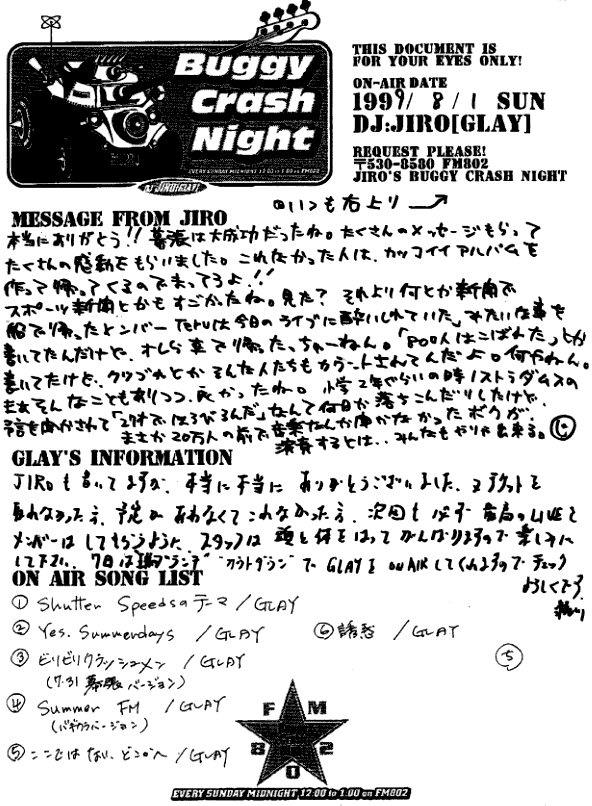 Buggy
Crash
Night
EVERY SUNDAY MIDNIGHT 12:00 to 1:00 on FM802
DJ:JIRO[GLAY]
THIS DOCUMENT IS
FOR YOUR EYES ONLY!
ON-AIR DATE
1999/ 8/1 SUN
DJ:JIRO[GLAY]
REQUEST PLEASE!
〒530-8580 FM802
JIRO'S BUGGY CRASH NIGHT
いつも右上り
MESSAGE FROM JIRO
本当にありがとう!! 幕張は大成功だったね。たくさんのメッセージもらって
たくさんの感動をもらいました。これなかった人は、カッコイイアルバムを
作って帰ってくるのでまってろよ!!
スポーツ新聞とかもすごかったね。見た? それより何とか新聞で
船で帰ったメンバー TERUは今日のライブに酔いしれていた」みたいな事を
書いてたんだけど、オレら車で帰ったっちゅーねん。
書いてたけど、
そんなこともありつつ、良かったね。小学2年ぐらいの時ノストラダムスの
予言を聞かされて「27才でほろびるんだ」なんて何日か落ちこんだりしたけど、
まさか20万人の前で音楽なんか興味なかったボクが
演奏するとは、みんなもやりゃ出来る。
GLAY'S INFORMATION
JIROも書いてますが、本当に本当にありがとうございました。チケットを
取れなかった方、予定があわなくてこれなかった方、次回も必ず最高のLIVEを
メンバーはしてもらうように、スタッフは頭と体をはってがんばりますので楽しみに
して下さい。7日は カウントダウンでGLAYをON AIRしてくれますのでチェック
よろしくです。
ON AIR SONG LIST
① Shutter Speedsのテーマ / GLAY
② Yes, Summerdays / GLAY
⑥ 誘惑 / GLAY
③ ビリビリクラッシュメン / GLAY
(7.31 幕張バージョン)
⑤
④ Summer FM / GLAY
(バギクラバージョン)
⑤ ここではない、どこかへ / GLAY
FM
802
EVERY SUNDAY MIDNIGHT 12:00 to 1:00 on FM802